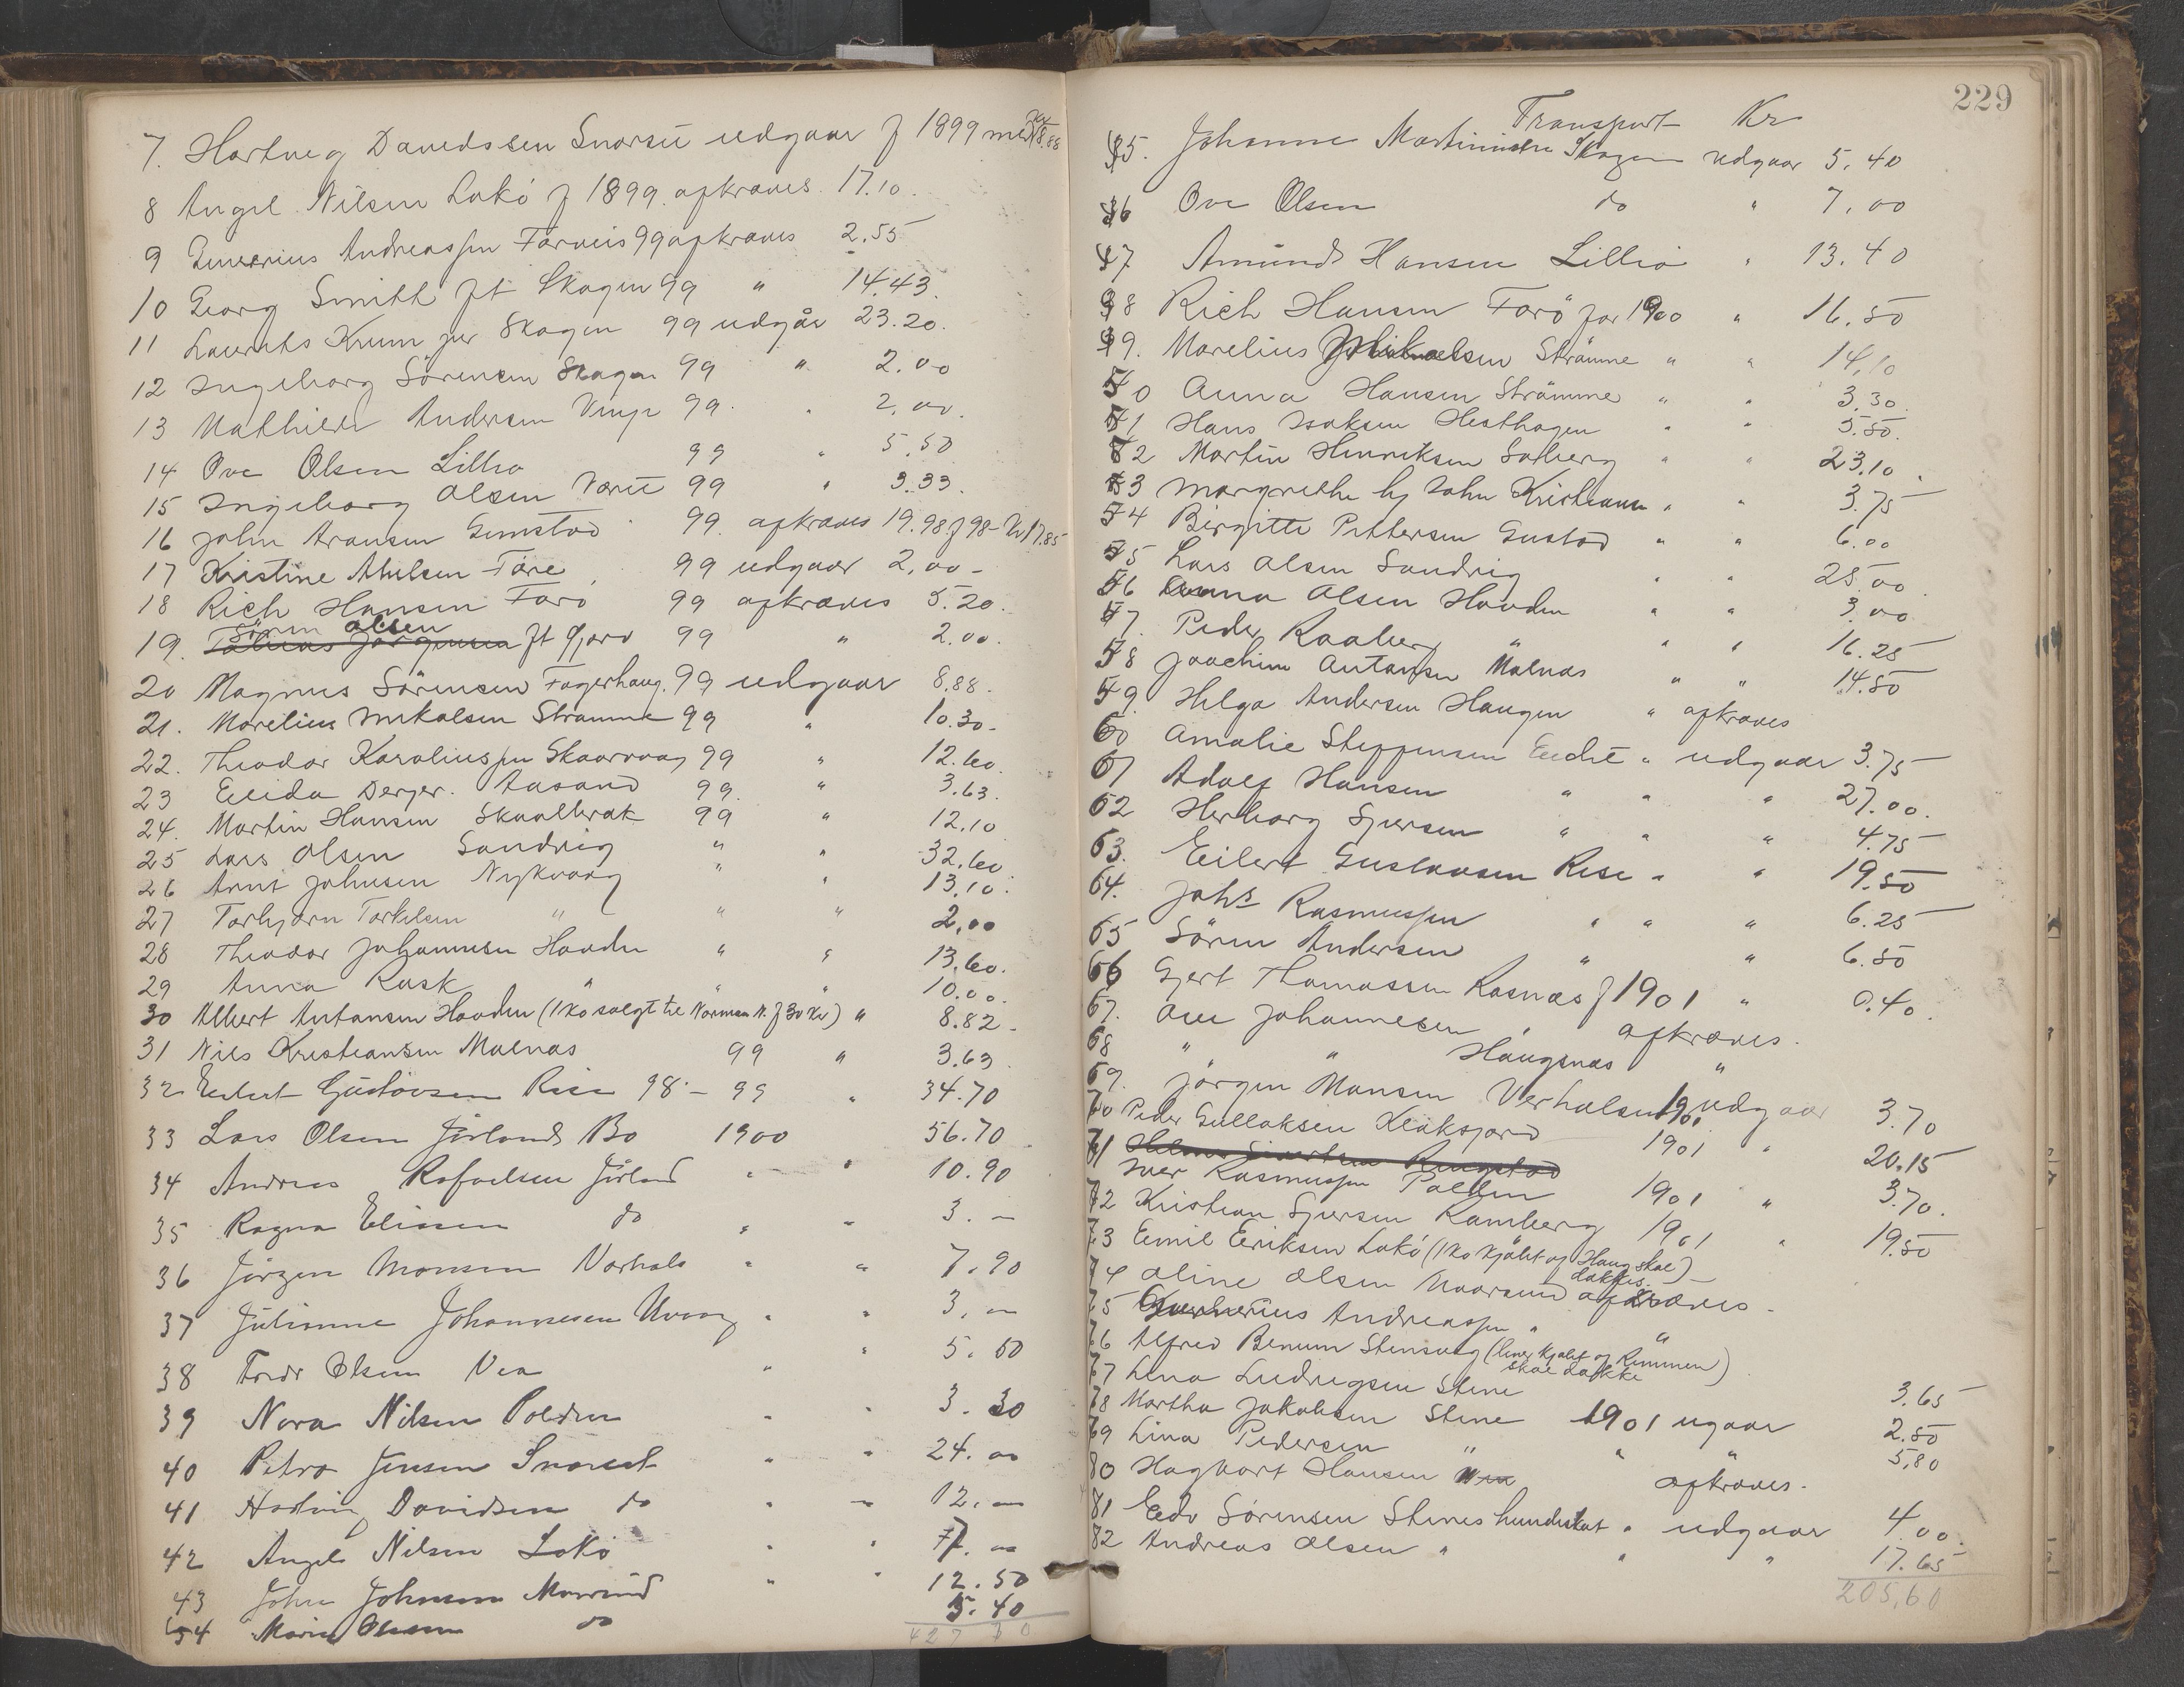 7. Hartvig Davidsen Snarset udgaar f 1899 med Kr 8.88
8 Angel Nilsen Lokö f 1899. afkræves. 17.10.
9 Andreassen 99 afkræves 2.55
10 Georg Smitt ft Skagen 99 " 14.43.
11 Laurits Krum jur Skagen 99 udgår 23.20.
12 Ingeborg Sörensen Skagen 99 " 2.00
13 Andersen 99. " 2,00.
14 Ove Olsen Lillio 99 " 5.50
15 Ingeborg Olsen 99 " 3.33.
16 John Aronsen Gimstad 99. afkræves 19.98 f 98- Kr 17.85
17 Kristine Töre 99 udgaar 2,00-
18 Rich Hansen Farö 99 afkræves 5.20.
19. Sören Olsen ft Gjord 99 " 2.00.
20 Magnus Sörensen Fagerhaug. 99 udgaar 8.88.
21. Marelius Mikalsen Strømme 99 " 10.30-
22. Theodor Karoliussen Skaarvaag 99 " 12.60.
23 Aasand 99. " 3.63.
24. Martin Hansen Skaalbrak 99 " 12.10
25 Lars Olsen Sandvig " " 32.60
26 Arnt Johnsen Nykvaag " " 13.10.
27 Torbjørn Torkilsen " " " 2,00
28 Theodor Johannesen Hovden " " 13.60.
29 Anna Rask " " " 10.00.
30 Albert Antonsen Hovden (1 ko solgt til Norman N. f 30 Kr) " 8.82-
31 Nils Kristiansen Malnæs 99 " 3.63.
32 Eilert Gustavsen Rise 98 - 99 " 34.70
33 Lars Olsen Jörland Bo 1900 56.70
34 Andreas Rafaelsen Jörland " " 10.90
35 Ragna Elissen do " " 3. -
36 Jörgen Monsen Varhals " " 7.90
37 Julianne Johannesen Uvaag " " 3. -
38 Olsen Vea " " 5.50
39 Nora Nilsen Polden " " 3.30
40 Petra Jensen Snarset " " 24. 00
41 Hartvig Davidsen do " " 12. -
42 Angel Nilsen Lokö " " 77. 00
43 John Johnsen " " 12.50
44 Marie Olsen do 5.40
427 70
229
Transport Kr
45. Johanne Martinussen Skagen udgaar 5.40
46 Ove Olsen do " 7.00
47 Amund Hansen Lillio " 13.40
48 Rich Hansen Forö for 1900 " 16.50
49. Marelius Mikaelsen Strømme " " 14,10
50 Anna Hansen Strømme " " 3.30.
51 Hans Isaksen Hesthagen " " 5.50.
52 Martin Henriksen Soberg " " 23,10.
53 Margrethe hj John Kristiansen " " 3.75
54 Birgitte Pettersen Gustad " " 6.00
55 Lars Olsen Sandvig " " 25.00
56 Anna Olsen Hovden " " 3.00
57. Peder Raaberg " " " 16.25
58 Joachim Antonsen Malnæs " " 14.50
59. Helga Andersen Haugen " afkræves
60 Amalie Steffensen Eidet " udgaar 3.75
61 Adolf Hansen " " " 27.00.
62 Herborg Sjursen " " " 4.75
63. Eilert Gustavsen Rise " " 19.50
64. Johs Rasmussen " " " 6.25
65 Sören Andersen " " 6.50
66 Gjert Thomassen Rasnæs f 1901 " 0.40.
67. Ane Johannesen " afkræves.
68 " " Haugsnæs "
69. Jørgen Monsen Verhalsen 1901 udgaar 3.70
70 Peder Gullaksen Klaksjord 1901 " 20.15
71 Iver Rasmussen Polden 1901 " 3.70.
72 Kristian Sjursen Ramberg 1901 " 19.50
73 Emil Eriksen Lokö (1 ko kjöbt af Haug skal dækkes.)
74 Oline Olsen afkræves -
75 Andreassen " "
76 Alfred Benum Stensvag (kjøbt af Rimmen skal dække)
77 Lina Ludvigsen Stene 3.65
78 Martha Jakobsen Stene 1901 ugaar 2.50
79 Lina Pedersen " " " 5,80
80 Hagbart Hansen afkræves.
81 Edv Sörensen Stenes hundeskat " udgaar 4.00.
82 Andreas Olsen " " " 17.65
205,60